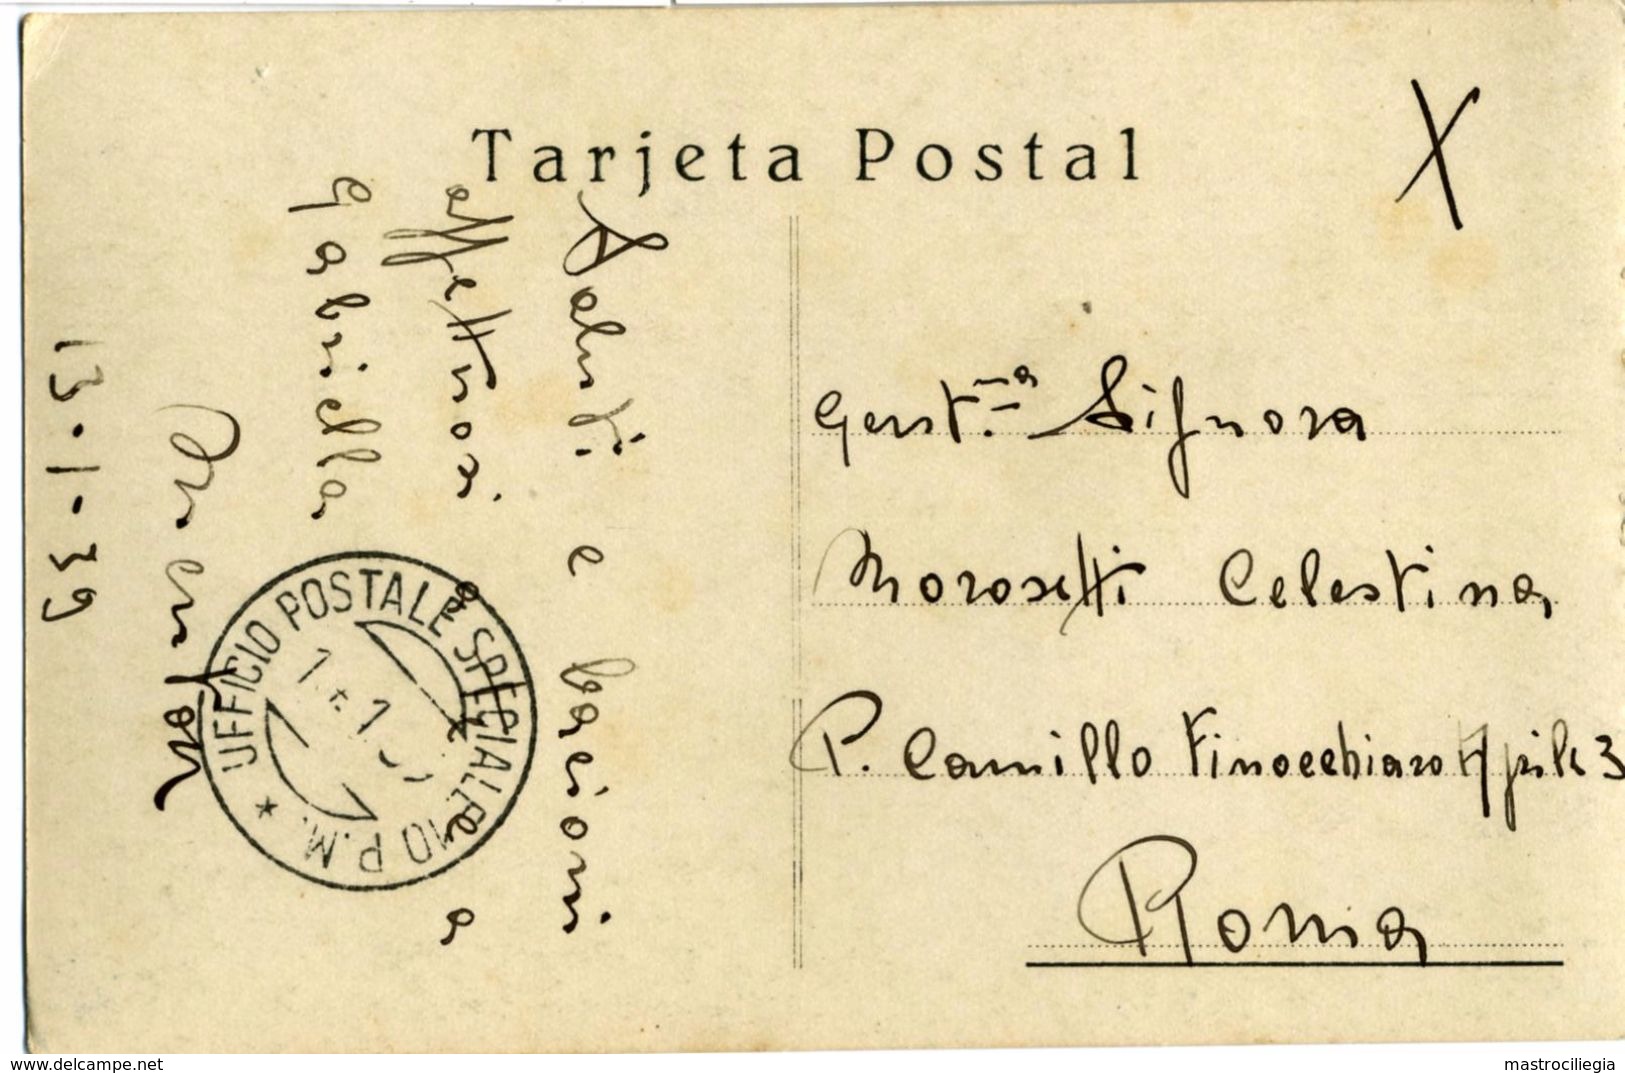 Tarjeta Postal
X
Gent.ma Signora
Morosetti Celestina
P. Camillo Finocchiaro Aprile 3
Roma
Saluti e bacioni
affettuosi a te e a
Gabriella
13-1-39
UFFICIO POSTALE SPECIALE
P.M. *
delcampe.net
mastrociliegia